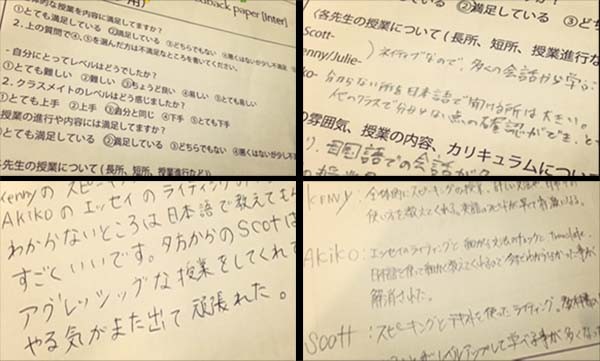 dback paper [Inter]
体的な授業を内容に満足してますか？
①とても満足している ②満足している ③どちらでもない ④悪くはないが少し不満足
2. 上の質問で④、⑤を選んだ方は不満足なところを書いてください。
- 自分にとってレベルはどうでしたか？
①とても難しい ②難しい ③ちょうど良い ④易しい ⑤とても易しい
2. クラスメイトのレベルはどう感じましたか？
①とても上手 ②上手 ③自分と同じ ④下手 ⑤とても下手
授業の進行や内容には満足してますか？
①とても満足している ②満足している ③どちらでもない ④悪くはないが少し不
各先生の授業について（長所、短所、授業進行など）
②満足している ③どち
（各先生の授業について（長所、短所、授業進行な
Scott-
enny/Julie-
ネイティブなので、多くの会話から学ぶ
ko-
分からない所を日本語で聞ける所は大きい。
代のクラスで分からない点の確認ができ、とっ
の雰囲気、授業の内容、カリキュラムについ
母国語での会話が
Kennyの スピー
AKIKOの エッセイの ライティングの
わからないところは 日本語で教えても
すごく いいです。夕方からの SCOTは
アグレッシッブな 授業をしてくれて
やる気がまた出て 頑張れた。
KENNY： 全体的にスピーキングの授業。
使い方を教えてくれる。
Akiko： エッセイのライティングと 細かい文法のチェックと translate.
日本語を使って細かく教えてくれるので 今までわからなかった事が
解消された。
Scott： スピーキングとテキストを使ったライティング。
レベルアップして学べる事が多くなった